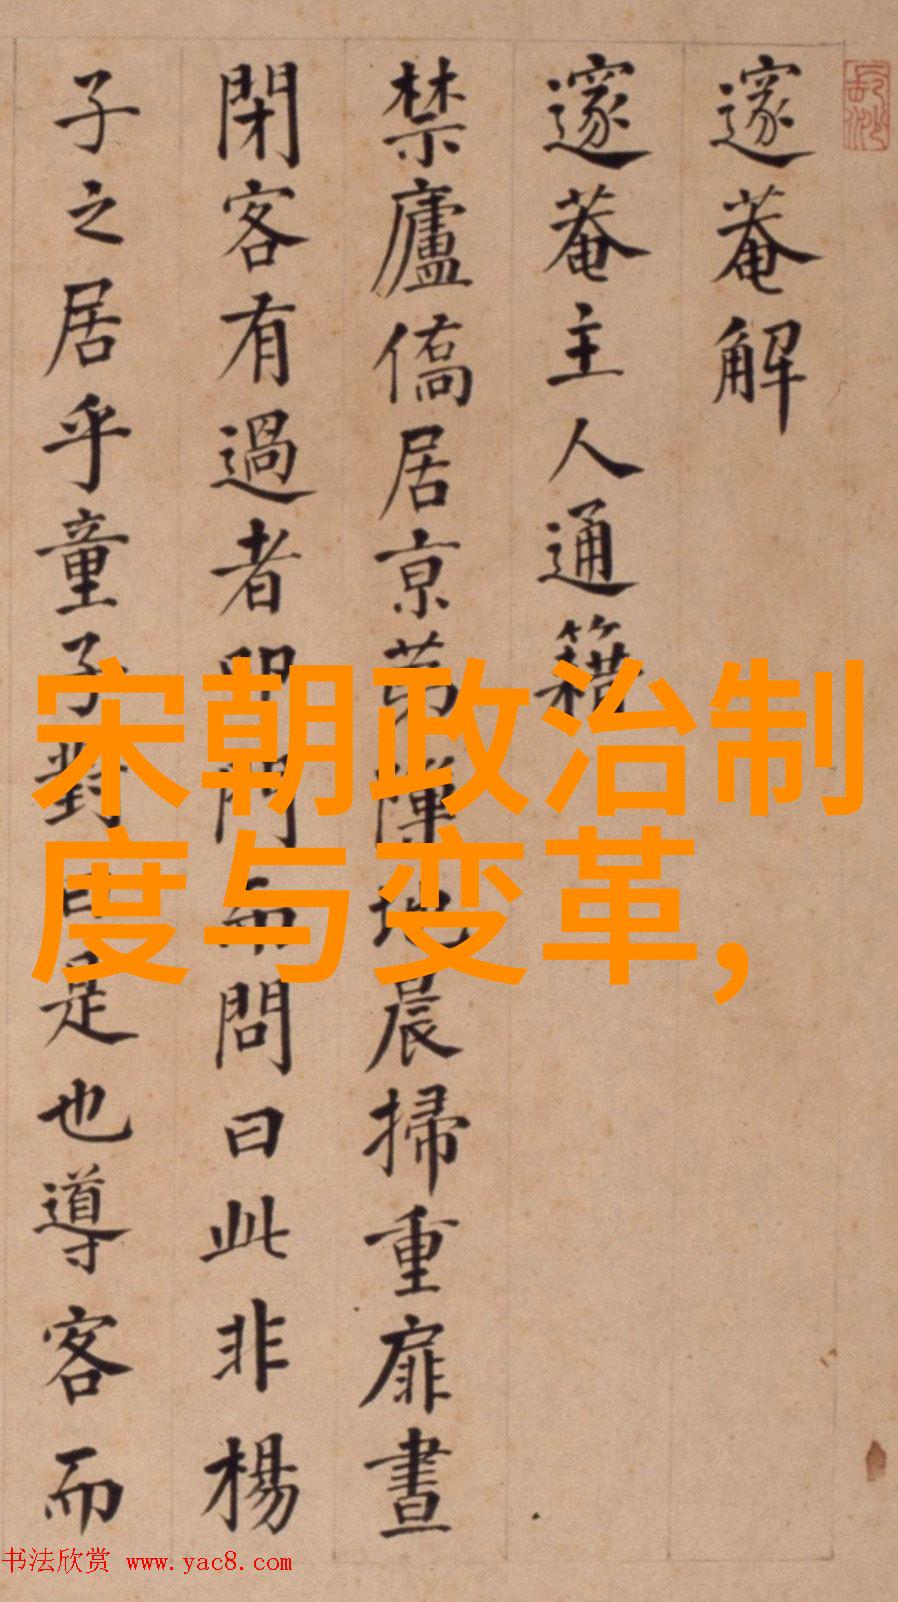 邃菴解
邃菴主人通籍
禁廬僑居京苐陣地晨掃重扉晝
閉客有過者叩門而問曰此非楊
子之居乎童子對曰是也導客而
宋朝政治制
度与变革,
书法欣赏 www.yac8.com